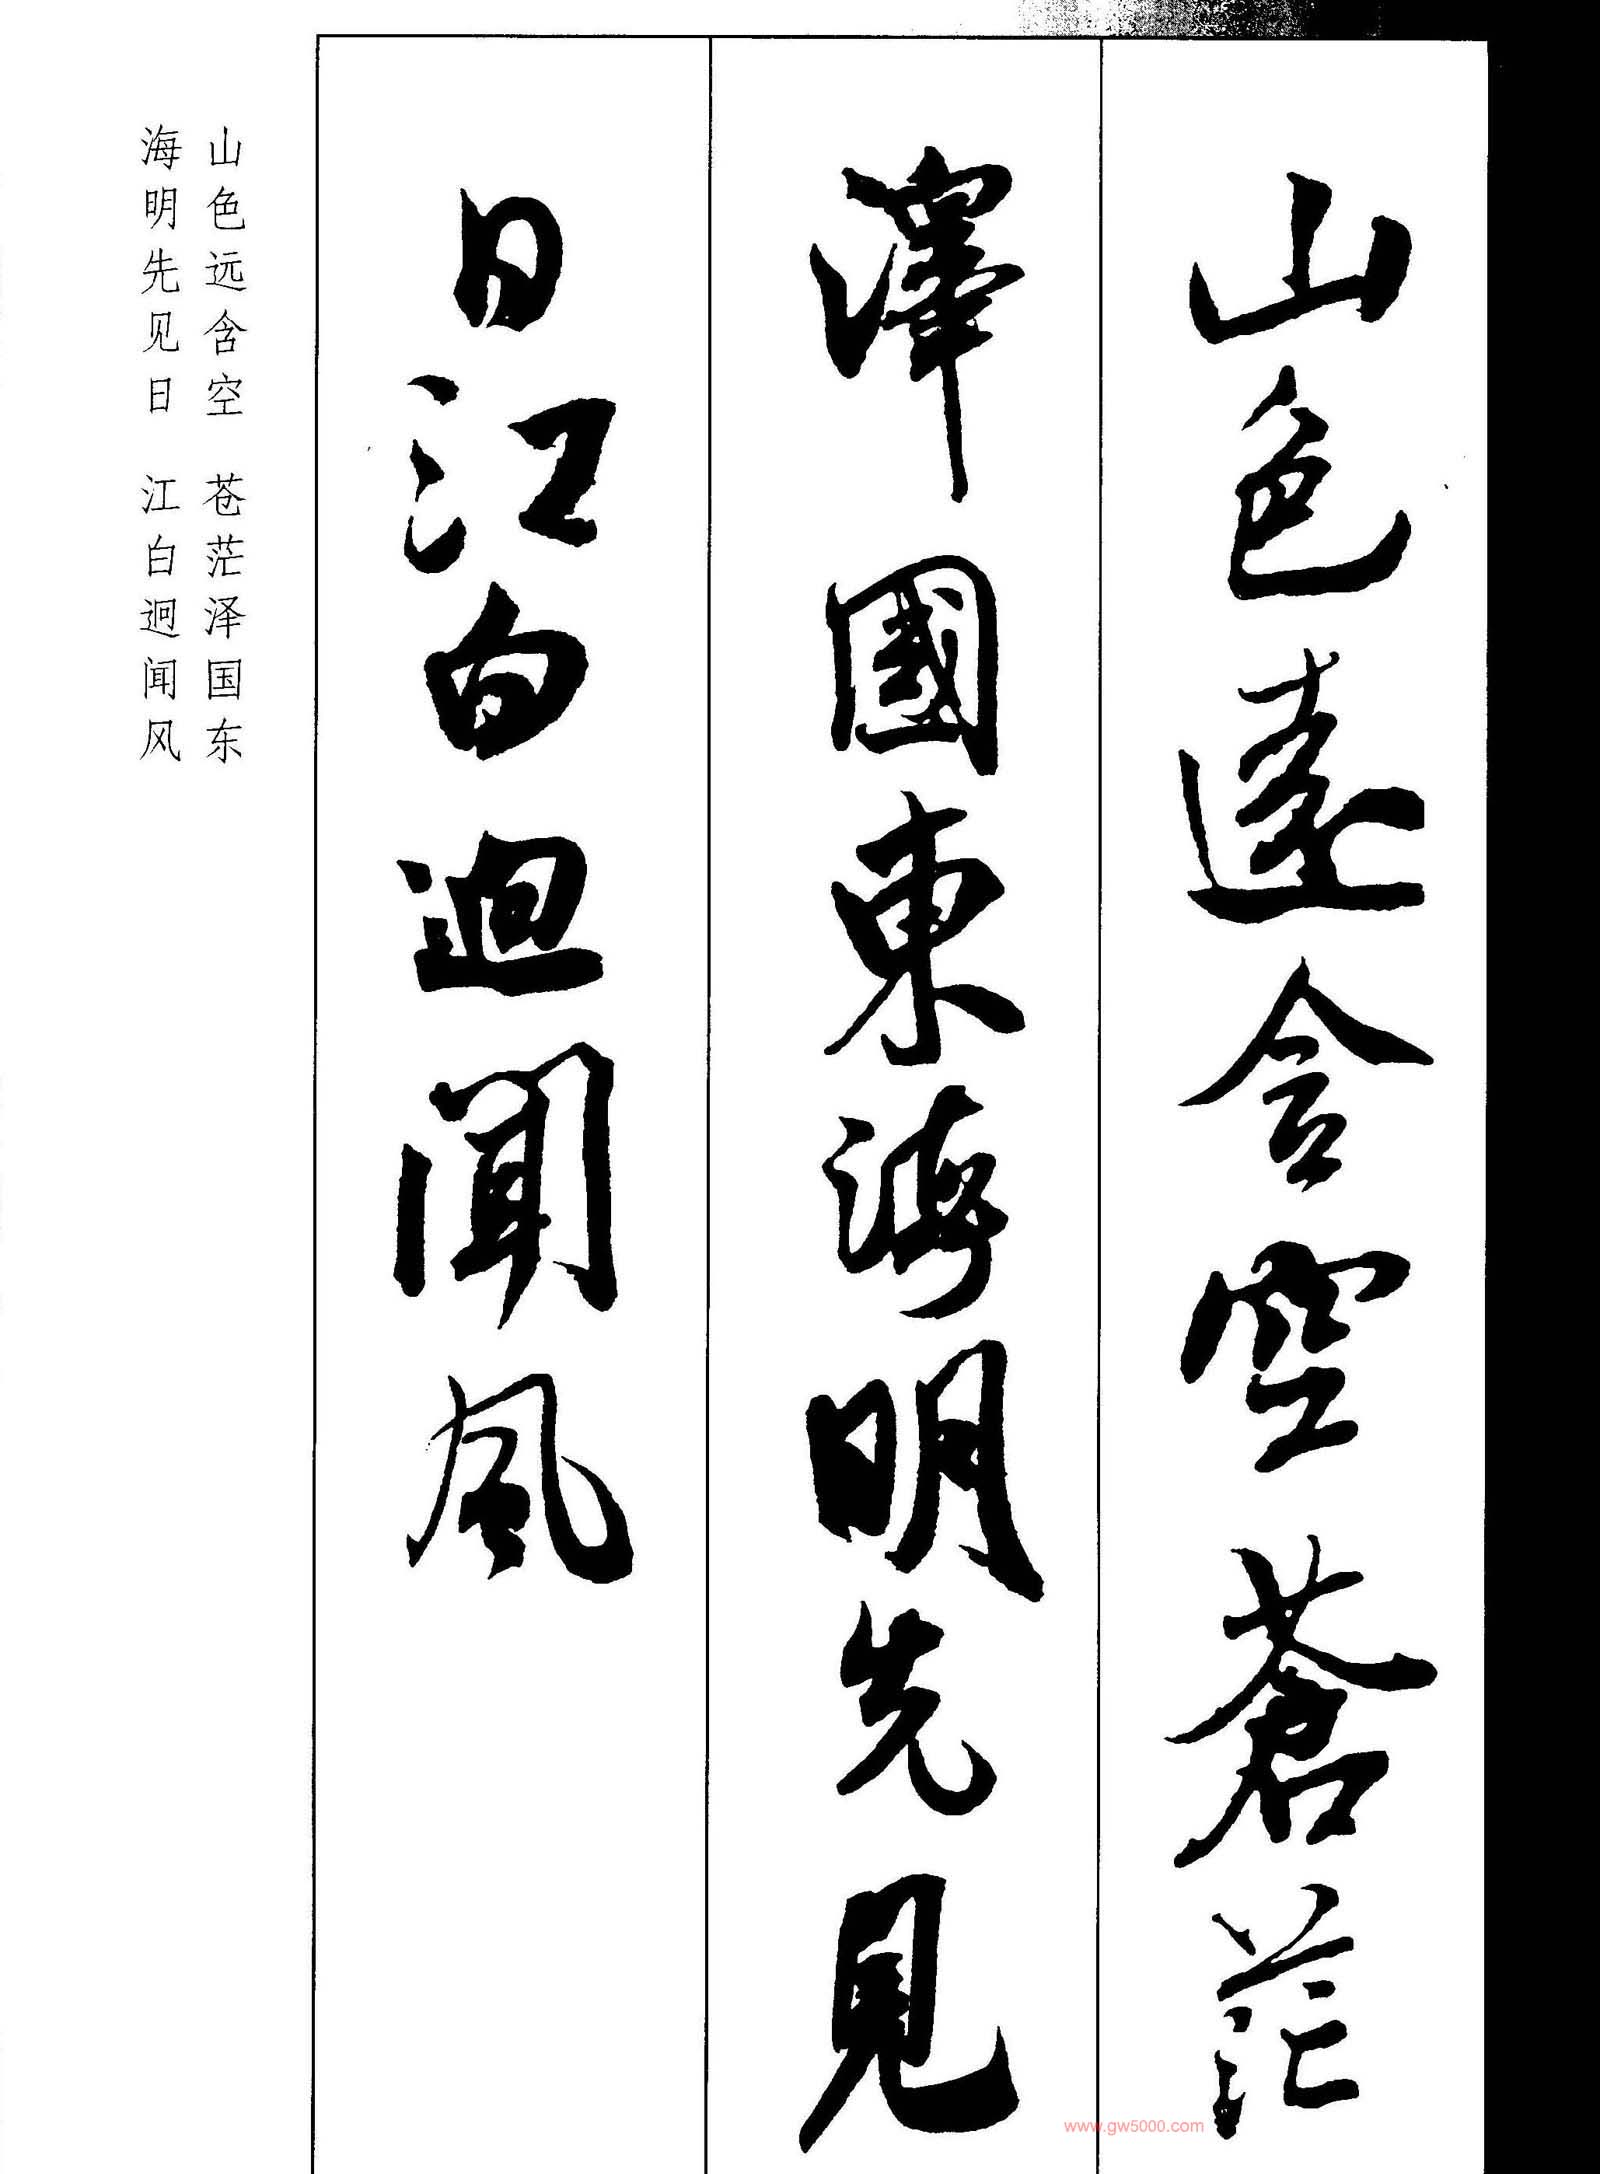 山色遠含空蒼茫
澤國東海明先見
日江白迥聞風
山色远含空 苍茫泽国东
海明先见日 江白迥闻风
www.gw5000.com